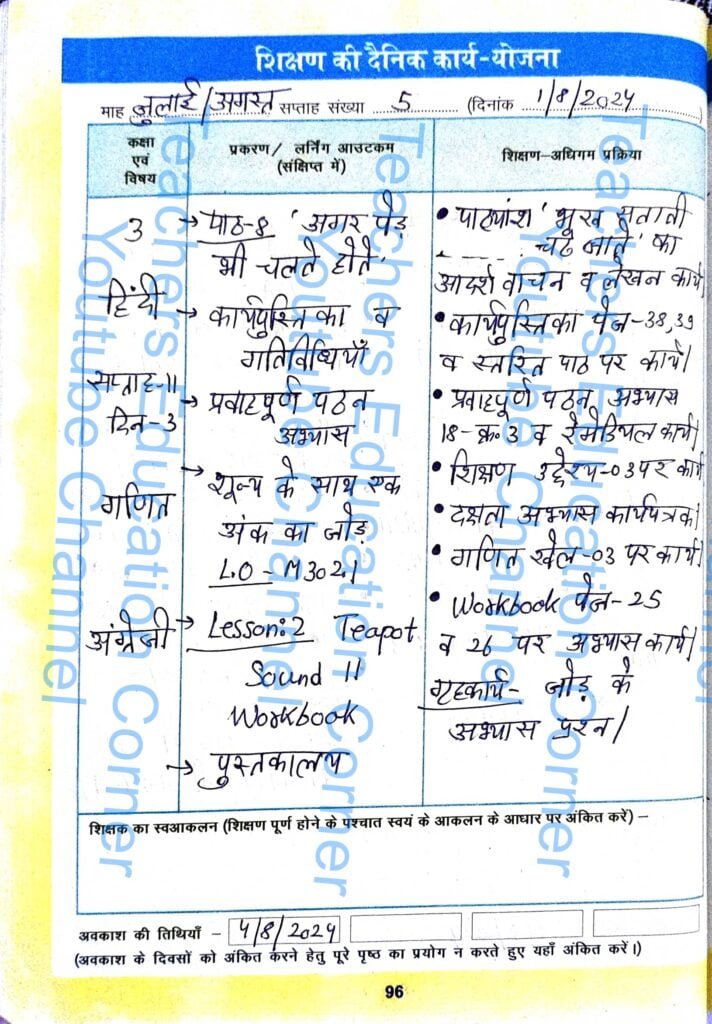 शिक्षण की दैनिक कार्य-योजना
माह जुलाई/अगस्त सप्ताह संख्या 5 (दिनांक 1/8/2024
कक्षा
एवं
विषय
प्रकरण/ लर्निंग आउटकम
(संक्षिप्त में)
शिक्षण-अधिगम प्रक्रिया
3
हिंदी
सप्ताह-11
दिन-3
गणित
अंग्रेजी
→ पाठ-8 'अगर पेड़
भी चलते होते'
→ कार्यपुस्तिका व
गतिविधियाँ
→ प्रवाहपूर्ण पठन
अभ्यास
→ शून्य के साथ एक
अंक का जोड़
L.O - M302.1
→ Lesson:2 Teapot
Sound II
Workbook
→ पुस्तकालय
• पाठ्यांश 'भूख सताती
_ _ _ _ _ चढ़ जाते' का
आदर्श वाचन व लेखन कार्य।
• कार्यपुस्तिका पेज-38,39
व स्तरित पाठ पर कार्य।
• प्रवाहपूर्ण पठन अभ्यास
18-क्र० 3 व रेमेडियल कार्य।
• शिक्षण उद्देश्य-03 पर कार्य
• दक्षता अभ्यास कार्यपत्रक।
• गणित खेल-03 पर कार्य।
• Workbook पेज-25
व 26 पर अभ्यास कार्य।
गृहकार्य- जोड़ के
अभ्यास प्रश्न।
शिक्षक का स्वआकलन (शिक्षण पूर्ण होने के पश्चात स्वयं के आकलन के आधार पर अंकित करें) –
अवकाश की तिथियाँ - 4/8/2024
(अवकाश के दिवसों को अंकित करने हेतु पूरे पृष्ठ का प्रयोग न करते हुए यहाँ अंकित करें।)
96
Teachers Education Corner
Youtube Channel
Teachers Education Corner
Youtube Channel
Teachers Education Corner
Youtube Channel